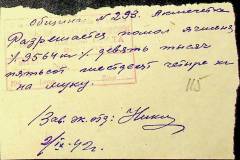 Общине N 293. Акмечетка
Разрешается помол ячменя,
% 9564 кг % девять тысяч
пятьсот шестдесят четыре кг
на муку.
115
Зав. эк. отд:
9/IX-42 г.